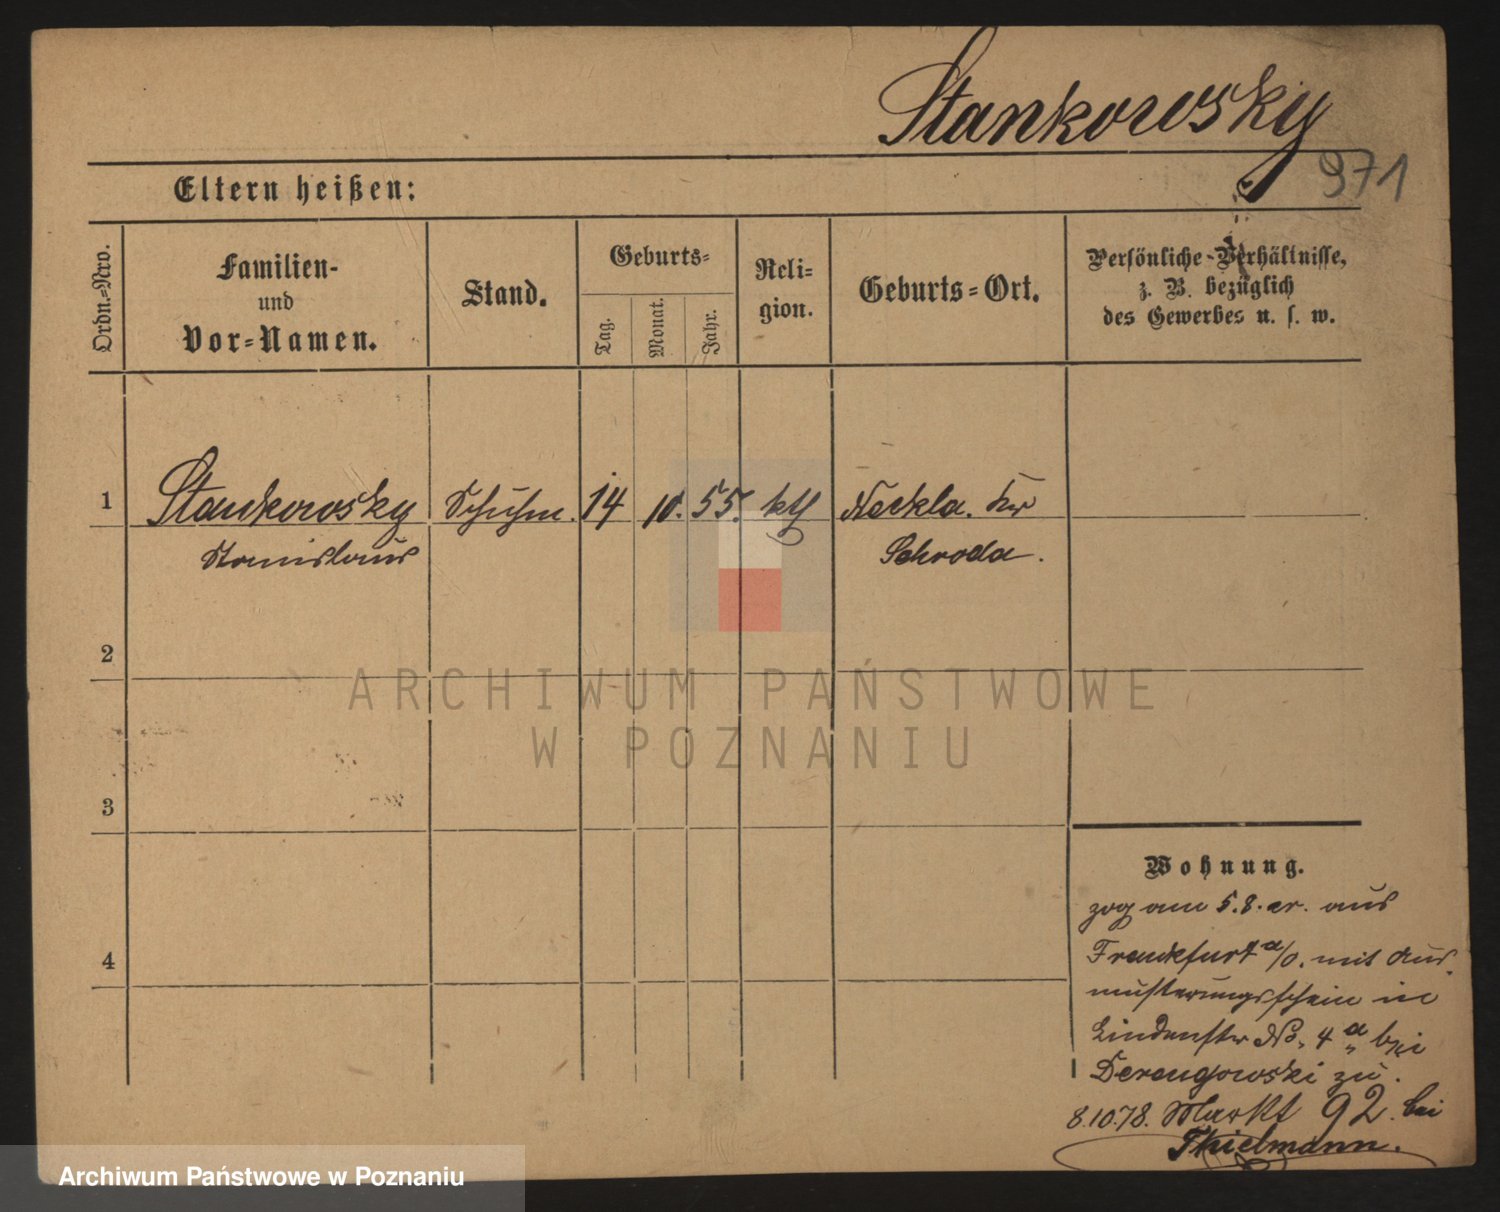 Stankowsky
971
Eltern heißen:
Ordn.-Nro.
Familien-
und
Vor-Namen.
Stand.
Geburts-
Tag.
Monat.
Jahr.
Reli-
gion.
Geburts-Ort.
Persönliche-Verhältnisse,
z. B. bezüglich
des Gewerbes u. s. w.
1 Stankowsky Schuhm. 14 10. 55. kth Neckla. Kr
Stanislaus Schroda.
2
3
4
Wohnung.
zog am 5.8. cr. aus
Frankfurt a/O. mit Aus-
musterungsschein in
Lindenstr No. 4a bei
Derengowski zu.
8.10.78. Markt 92. bei
Thielmann.
ARCHIWUM PAŃSTWOWE
W POZNANIU
Archiwum Państwowe w Poznaniu